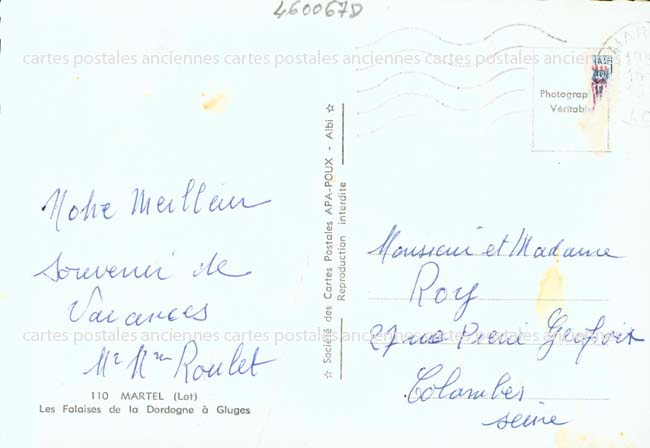 460067D
cartes postales anciennes cartes postales anciennes cartes postales anciennes
MAR
Photograp
Véritabl
☆ Société des Cartes Postales APA-POUX - Albi ☆
Reproduction interdite
Notre Meilleur
Souvenir de
Vacances
Mr Mme Roulet
Monsieur et Madame
Roy
27 rue Pierre
Colombes
Seine
cartes postales anciennes cartes postales anciennes cartes postales anciennes
110 MARTEL (Lot)
Les Falaises de la Dordogne à Gluges